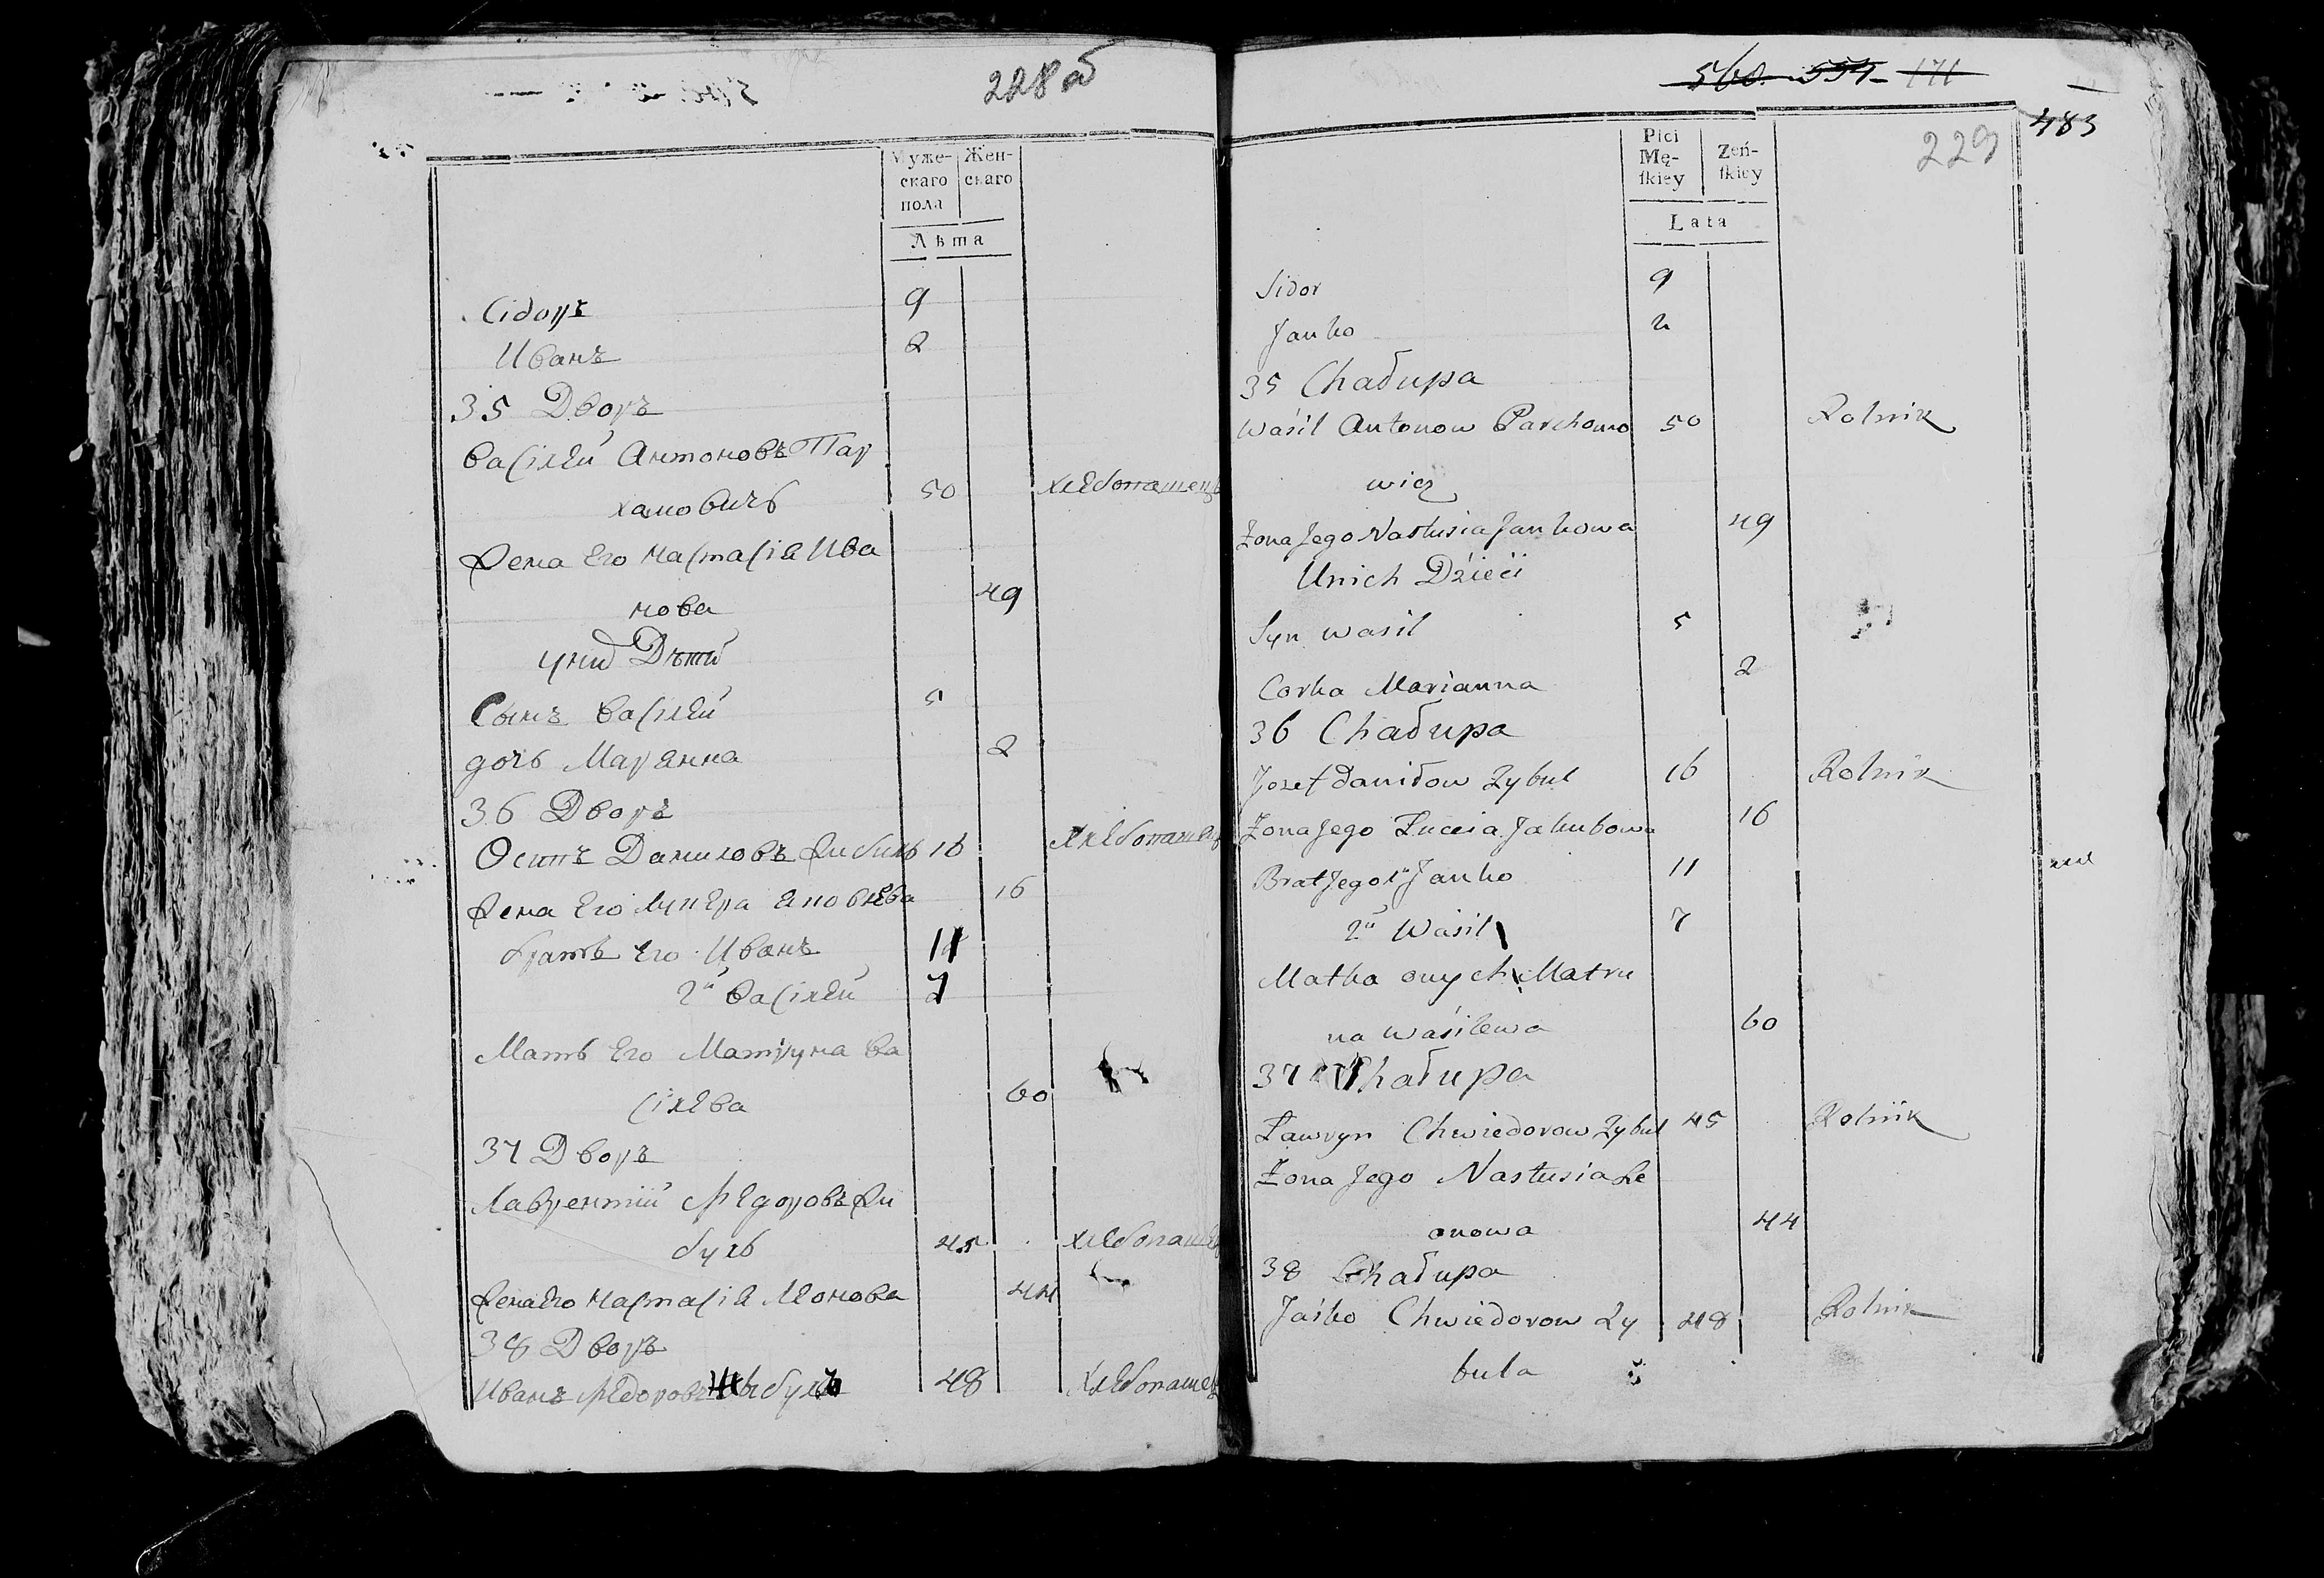 228 об
Муже-
скаго
пола
Жен-
скаго
Лѣта
Сідоръ 9
Иванъ 2
35 Дворъ
Василей Антоновъ Пар
хамовичь 50 хлебопашецъ
Жена Его Настасія Ива
нова 49
у них Дѣти
Сынъ Василей 5
дочь Марянна 2
36 Дворъ
Осипъ Даниловъ Жибуль 16 Хлебопашец
Жена Его Яковлева 16
братъ Его Иванъ 11
2й Василей 7
Мать Его Матруна Ва
сілева 60
37 Дворъ
Лаврентій Федоровъ Жи
буль 45 хлебопашец
Жена Его Настасія Леонова 44
38 Дворъ
Иванъ Федоровъ 48 Хлебопашец
560. 554. 171
483
229
Płci
Mę-
ſkiey
Zeń-
ſkiey
Lata
Sidor 9
Janko 2
35 Chałupa
Waśil Antonow Parchomo 50 Rolnik
wicz
Żona Jego Nastusia Jankowa 49
Unich Dzieci
Syn Wasil 5
Corka Marianna 2
36 Chałupa
Jozef Daniłow Zybul 16 Rolnik
Żona Jego Łuceia Jakubowa 16
Brat Jego 1й Janko 11
2й Wasil 7
Matka onych Matru
na Waśilewa 60
37 Chałupa
Ławryn Chwiedorow Zybul 45 Rolnik
Żona Jego Nastusia Le
onowa 44
38 Chałupa
Jaśko Chwiedorow Zy 48 Rolnik
bula